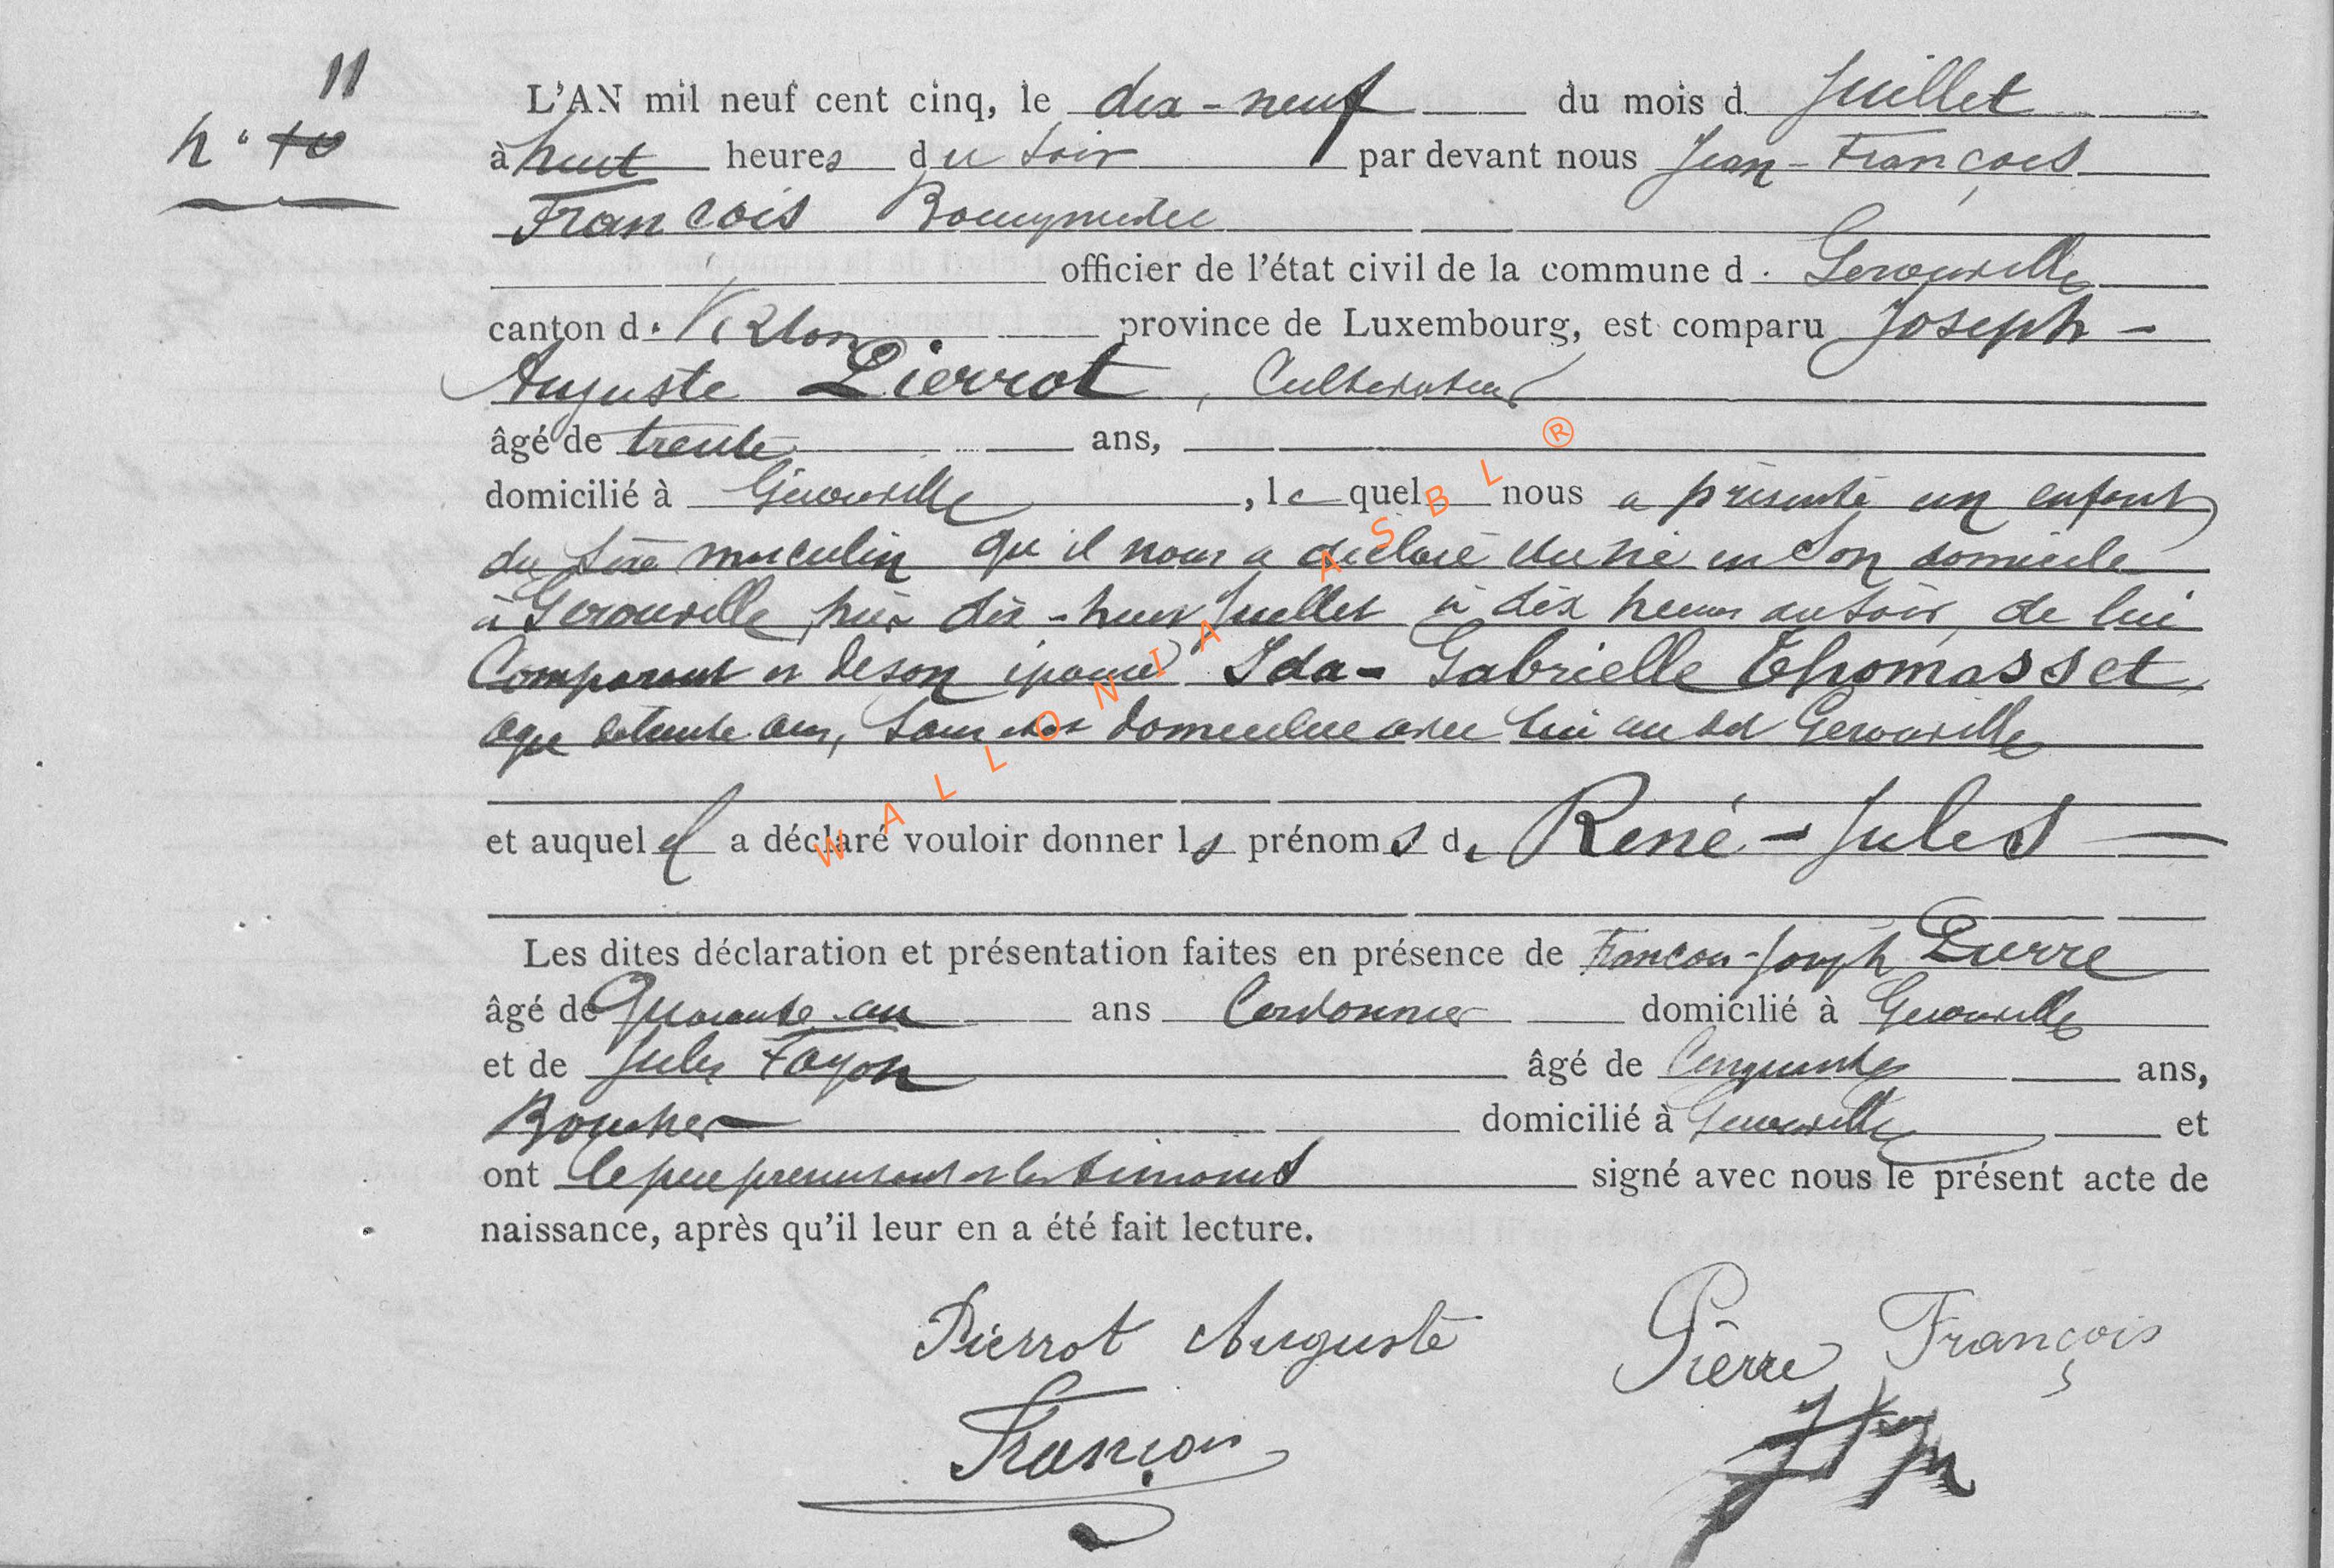 11
n° 10
L'AN mil neuf cent cinq, le dix-neuf du mois d Juillet
à huit heures du soir par devant nous Jean-François
François Bourgmestre
officier de l'état civil de la commune d. Gerouville
canton d. Virton province de Luxembourg, est comparu Joseph-
Auguste Pierrot, Cultivateur
âgé de trente ans,
domicilié à Gérouville, le quel nous a présenté un enfant
du sexe masculin qu'il nous a déclaré être né en son domicile
à Gerouville, hier dix-huit Juillet à dix heures du soir, de lui
Comparant et de son épouse Ida-Gabrielle Thomasset,
agée de trente ans, domiciliée avec lui au dit Gerouville
et auquel il a déclaré vouloir donner ls prénoms de René-Jules
Les dites déclaration et présentation faites en présence de François-Joseph Pierre
âgé de Quarante-un ans Cordonnier domicilié à Gerouville
et de Jules Fayon âgé de Cinquante ans,
Boucher domicilié à Gerouville et
ont le père et les témoins signé avec nous le présent acte de
naissance, après qu'il leur en a été fait lecture.
Pierrot Auguste
Pierre François
François
WALLONIA ASBL ®